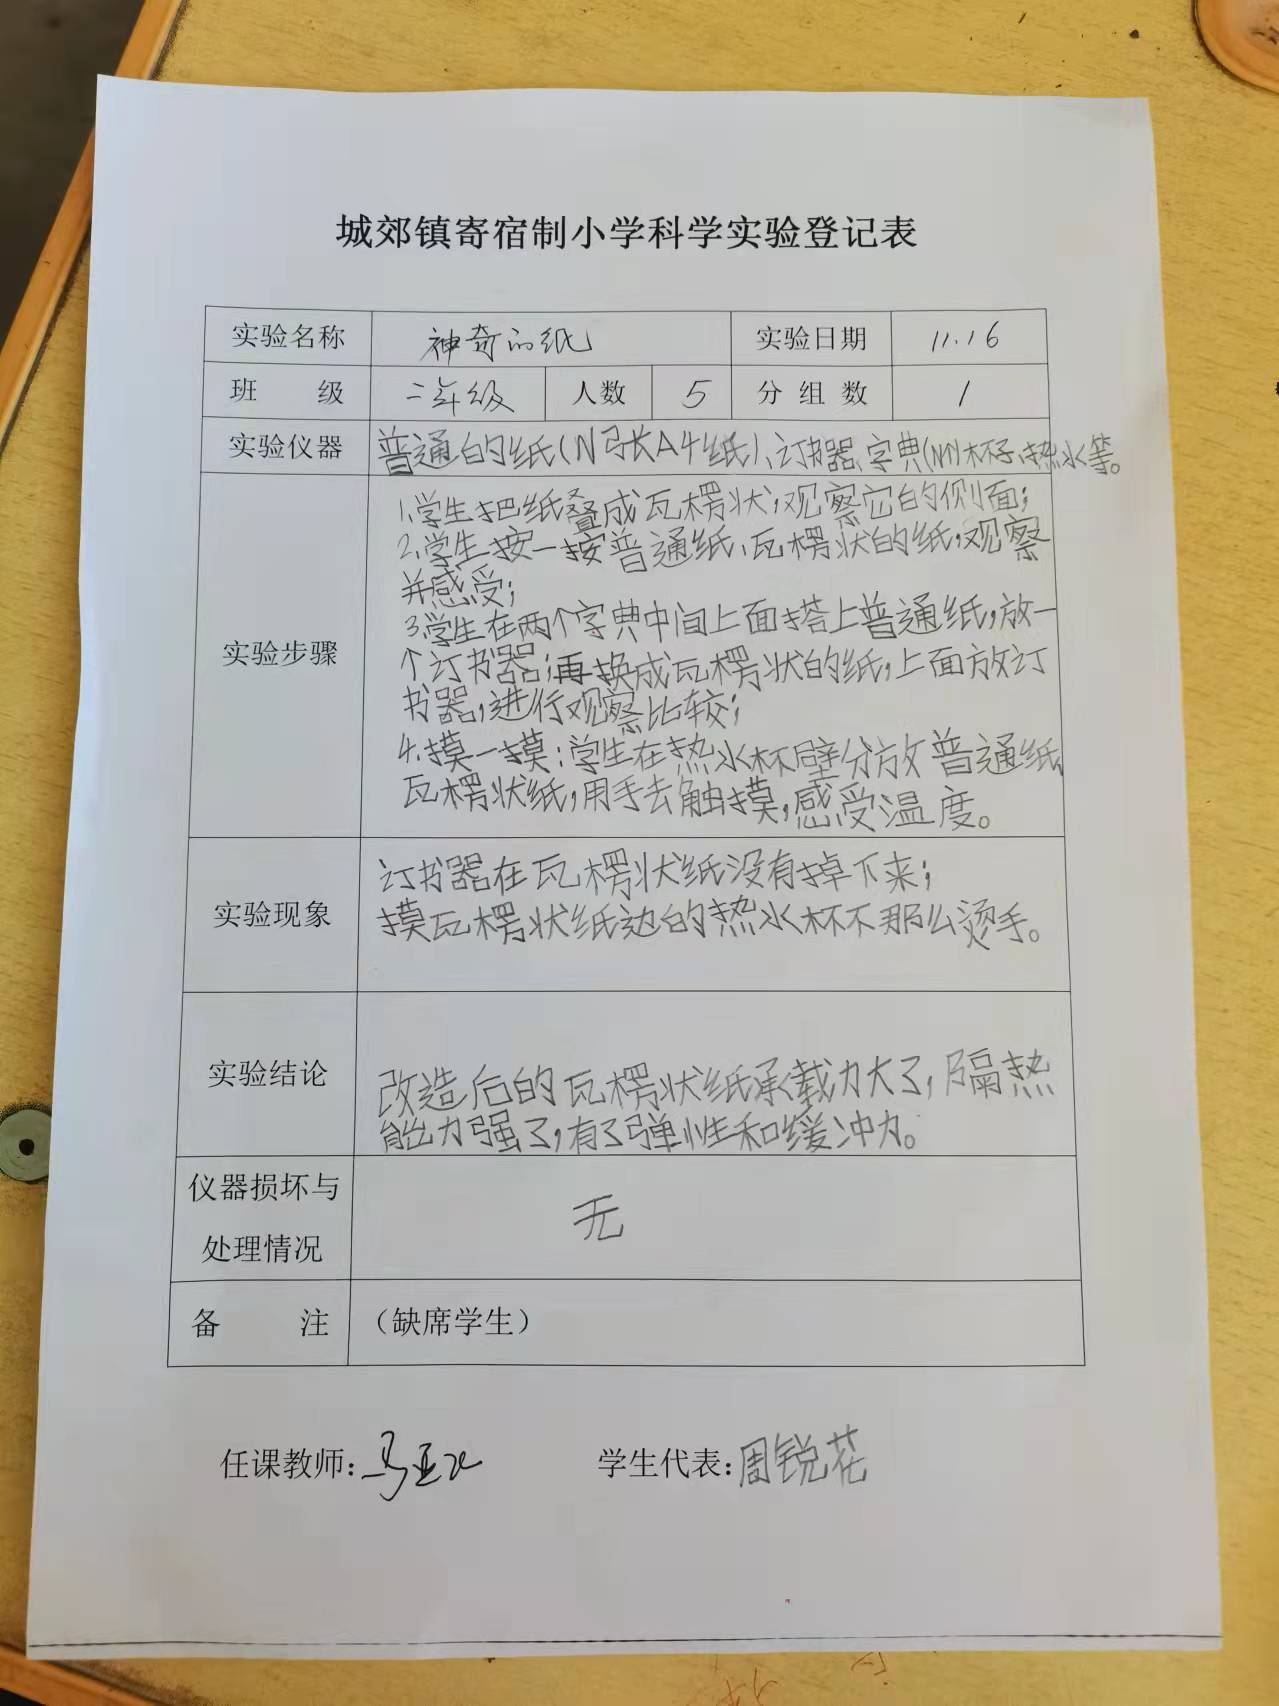 城郊镇寄宿制小学科学实验登记表
实验名称 神奇的纸 实验日期 11.16
班 级 二年级 人数 5 分组数 1
实验仪器 普通的纸(N弓长A4纸)、订书器、字典(NN)杯子、热水等。
实验步骤
1.学生把纸叠成瓦楞状,观察它的侧面;
2.学生按一按普通纸、瓦楞状的纸,观察
并感受;
3.学生在两个字典中间上面搭上普通纸,放一
个订书器;再换成瓦楞状的纸,上面放订
书器,进行观察比较;
4.摸一摸:学生在热水杯壁分放普通纸
瓦楞状纸,用手去触摸,感受温度。
实验现象
订书器在瓦楞状纸没有掉下来;
摸瓦楞状纸边的热水杯不那么烫手。
实验结论
改造后的瓦楞状纸承载力大了,隔热
能力强了,有了弹性和缓冲力。
仪器损坏与
处理情况 无
备 注 (缺席学生)
任课教师: 马 学生代表:周锐花